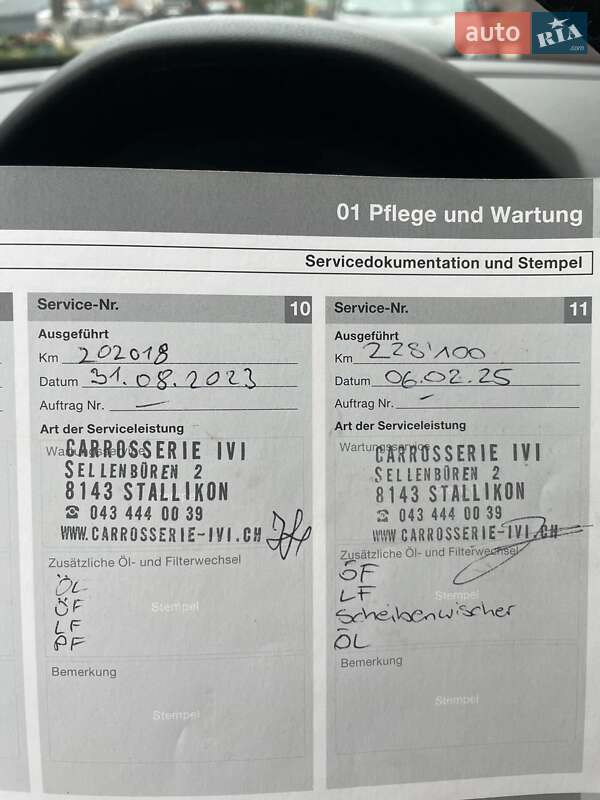 auto RIA .com
01 Pflege und Wartung
Servicedokumentation und Stempel
Service-Nr. 10
Ausgeführt
Km 202018
Datum 31.08.2023
Auftrag Nr. —
Art der Serviceleistung
Wartungsservice
CARROSSERIE IVI
SELLENBÜREN 2
8143 STALLIKON
☎ 043 444 00 39
WWW.CARROSSERIE-IVI.CH
Zusätzliche Öl- und Filterwechsel
ÖL
ÖF
LF
PF
Stempel
Bemerkung
Stempel
Service-Nr. 11
Ausgeführt
Km 228'100
Datum 06.02.25
Auftrag Nr. –
Art der Serviceleistung
Wartungsservice
CARROSSERIE IVI
SELLENBÜREN 2
8143 STALLIKON
☎ 043 444 00 39
WWW.CARROSSERIE-IVI.CH
Zusätzliche Öl- und Filterwechsel
ÖF
LF
Stempel
Scheibenwischer
ÖL
Bemerkung
Stempel